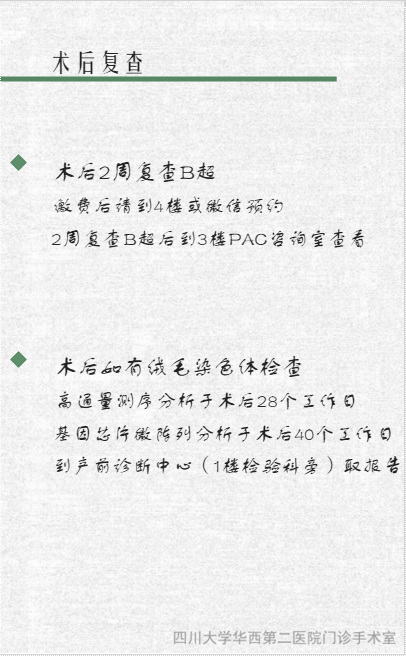 术后复查
术后2周复查B超
缴费后请到4楼或微信预约
2周复查B超后到3楼PAC咨询室查看
术后如有绒毛染色体检查
高通量测序分析于术后28个工作日
基因芯片微阵列分析于术后40个工作日
到产前诊断中心（1楼检验科旁）取报告
四川大学华西第二医院门诊手术室